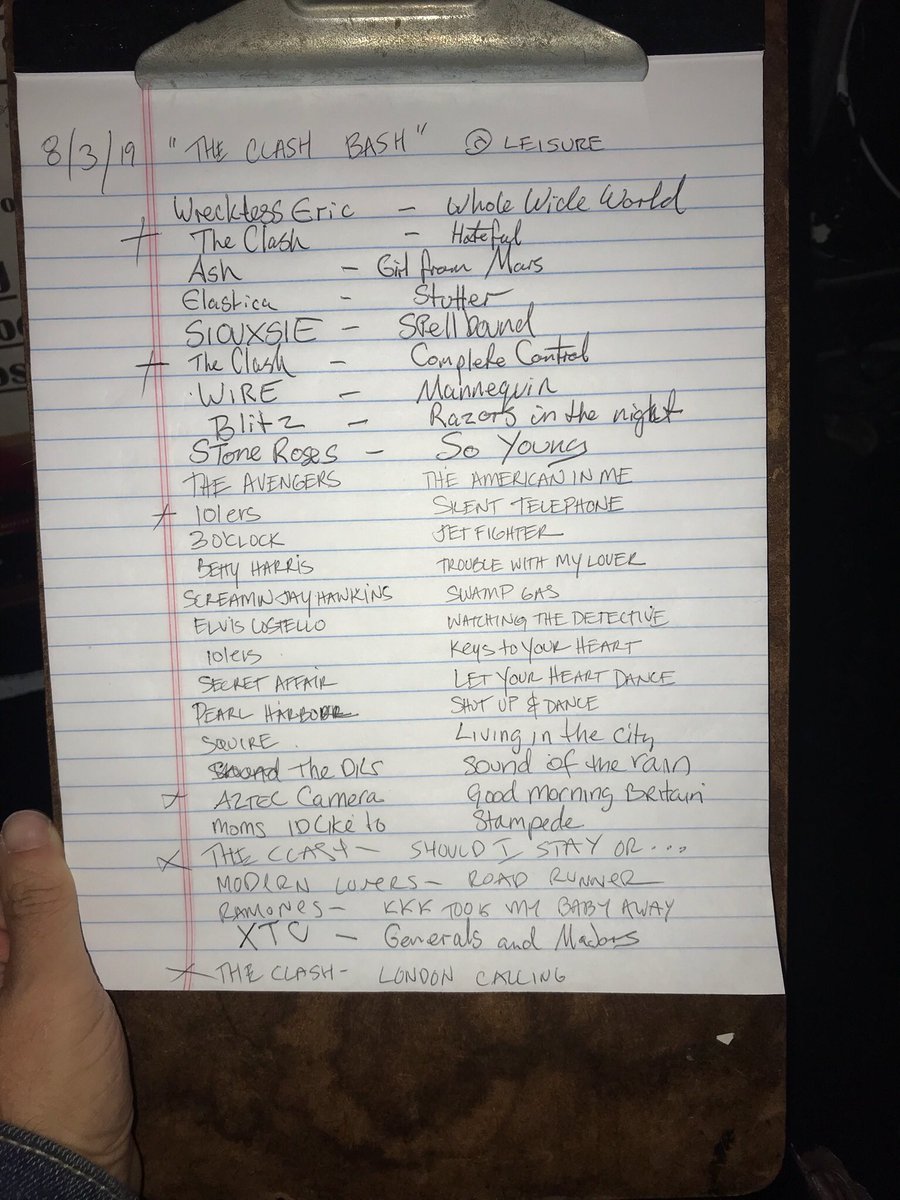 8/3/19 "THE CLASH BASH" @ LEISURE
Wreckless Eric - Whole Wide World
The Clash - Hateful
Ash - Girl from Mars
Elastica - Stutter
SIOUXSIE - Spellbound
The Clash - Complete Control
WIRE - Mannequin
Blitz - Razors in the night
Stone Roses - So Young
THE AVENGERS THE AMERICAN IN ME
101ers SILENT TELEPHONE
3 O'CLOCK JET FIGHTER
BETTY HARRIS TROUBLE WITH MY LOVER
SCREAMIN JAY HAWKINS SWAMP GAS
ELVIS COSTELLO WATCHING THE DETECTIVE
101ers KEYS TO YOUR HEART
SECRET AFFAIR LET YOUR HEART DANCE
PEARL HARBOUR SHUT UP & DANCE
SQUIRE Living in the city
The Dils Sound of the rain
AZTEC Camera Good morning Britain
Moms ID Like to Stampede
THE CLASH - SHOULD I STAY OR....
MODERN LOVERS - ROAD RUNNER
RAMONES - KKK TOOK MY BABY AWAY
XTC - Generals and Majors
THE CLASH - LONDON CALLING